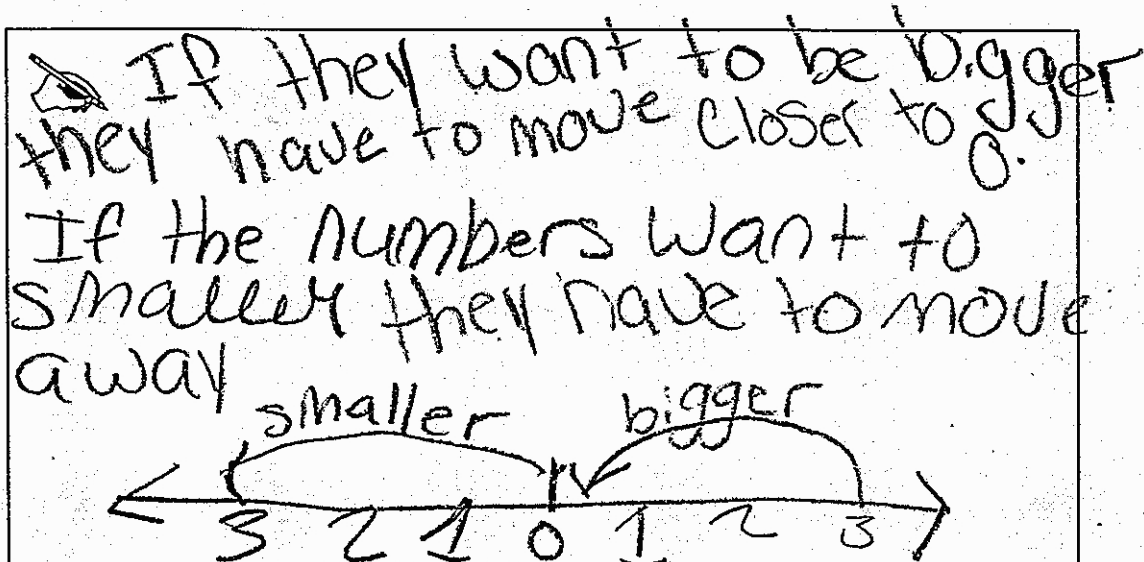 If they want to be bigger
they have to move closer to
0.
If the numbers want to
smaller they have to move
away
smaller bigger
3 2 1 0 1 2 3